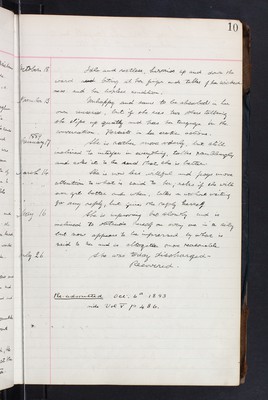 10
October 18 Idle and restless, hurried up and down the
ward and biting at her fingers and talks of her wickedness
and her hopeless condition.
November 13 Unhappy and seems to be absorbed in her
own miseries, but if she sees two others talking
she slips up quietly and has her tongue in the
conversation. Persists in her restless actions.
1889
January 17 She is rather more orderly, but still
inclined to interfere in everything. Writes
and asks it to be said that she is better.
March 16 She is now less wilful and pays more
attention to what is said to her, asks if she will
ever get better and when, but without waiting
for any reply, but gives the reply herself.
May 16 She is improving but slowly and is
inclined to obtrude herself on every one in a silly
but now appears to be impressed by what is
said to her and is altogether more reasonable.
July 26 She was today discharged-
Recovered.
Re-admitted Oct. 6th 1893
vide Vol V p. 486.